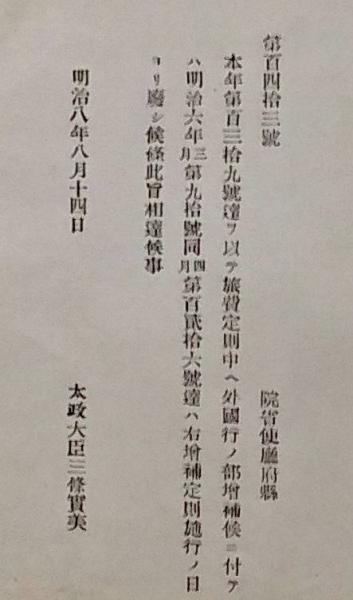 第百四拾三號
院省使廳府縣
本年第百三拾九號達ヲ以テ旅費定則中ヘ外國行ノ部增補候ニ付テ
ハ明治六年三月第九拾號同四月第百貳拾六號達ハ右增補定則施行ノ日
ヨリ廢シ候條此旨相達候事
明治八年八月十四日
太政大臣三條實美